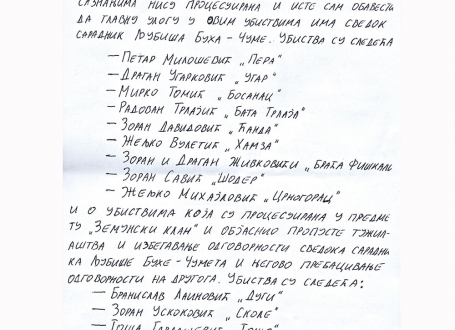 САЗНАЊИМА НИСУ ПРОЦЕСУИРАНА И ИСТЕ САМ ОБАВЕСТИ
ДА ГЛАВНУ УЛОГУ У ОВИМ УБИСТВИМА ИМА СВЕДОК
САРАДНИК ЉУБИША БУХА - ЧУМЕ. УБИСТВА СУ СЛЕДЕЋА
— ПЕТАР МИЛОШЕВИЋ „ПЕРА“
— ДРАГАН УГАРКОВИЋ „УГАР“
— МИРКО ТОМИЋ „БОСАНАЦ“
— РАДОВАН ТРЛАЈИЋ „БАТА ТРЛАЈА“
— ЗОРАН ДАВИДОВИЋ „ЋАНДА“
— ЖЕЉКО ВУЛЕТИЋ „ХАМЗА“
— ЗОРАН И ДРАГАН ЖИВКОВИЋИ „БРАЋА ФИШКАЛ
— ЗОРАН САВИЋ „ШОДЕР“
— ЖЕЉКО МИХАЈЛОВИЋ „ЦРНОГОРАЦ“
И О УБИСТВИМА КОЈА СУ ПРОЦЕСУИРАНА У ПРЕДМЕ
ТУ „ЗЕМУНСКИ КЛАН“ И ОБЈАСНИО ПРОПУСТЕ ТУЖИЛ
АШТВА И ИЗБЕГАВАЊЕ ОДГОВОРНОСТИ СВЕДОКА САРАДНИ
КА ЉУБИШЕ БУХЕ - ЧУМЕТА И ЊЕГОВО ПРЕБАЦИВАЊЕ
ОДГОВОРНОСТИ НА ДРУГОГА. УБИСТВА СУ СЛЕДЕЋА:
— БРАНИСЛАВ ЛАИНОВИЋ „ДУГИ“
— ЗОРАН УСКОКОВИЋ „СКОЛЕ“